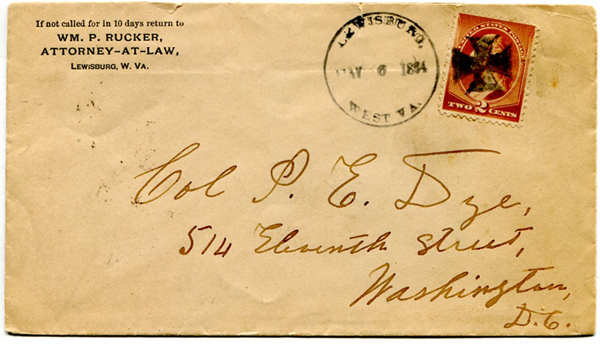 If not called for in 10 days return to
WM. P. RUCKER,
ATTORNEY-AT-LAW,
LEWISBURG, W. VA.
LEWISBURG,
MAY 6 1884
WEST VA.
UNITED STATES POSTAGE
TWO 2 CENTS
Col P. E. Dye,
514 Eleventh Street,
Washington,
D.C.